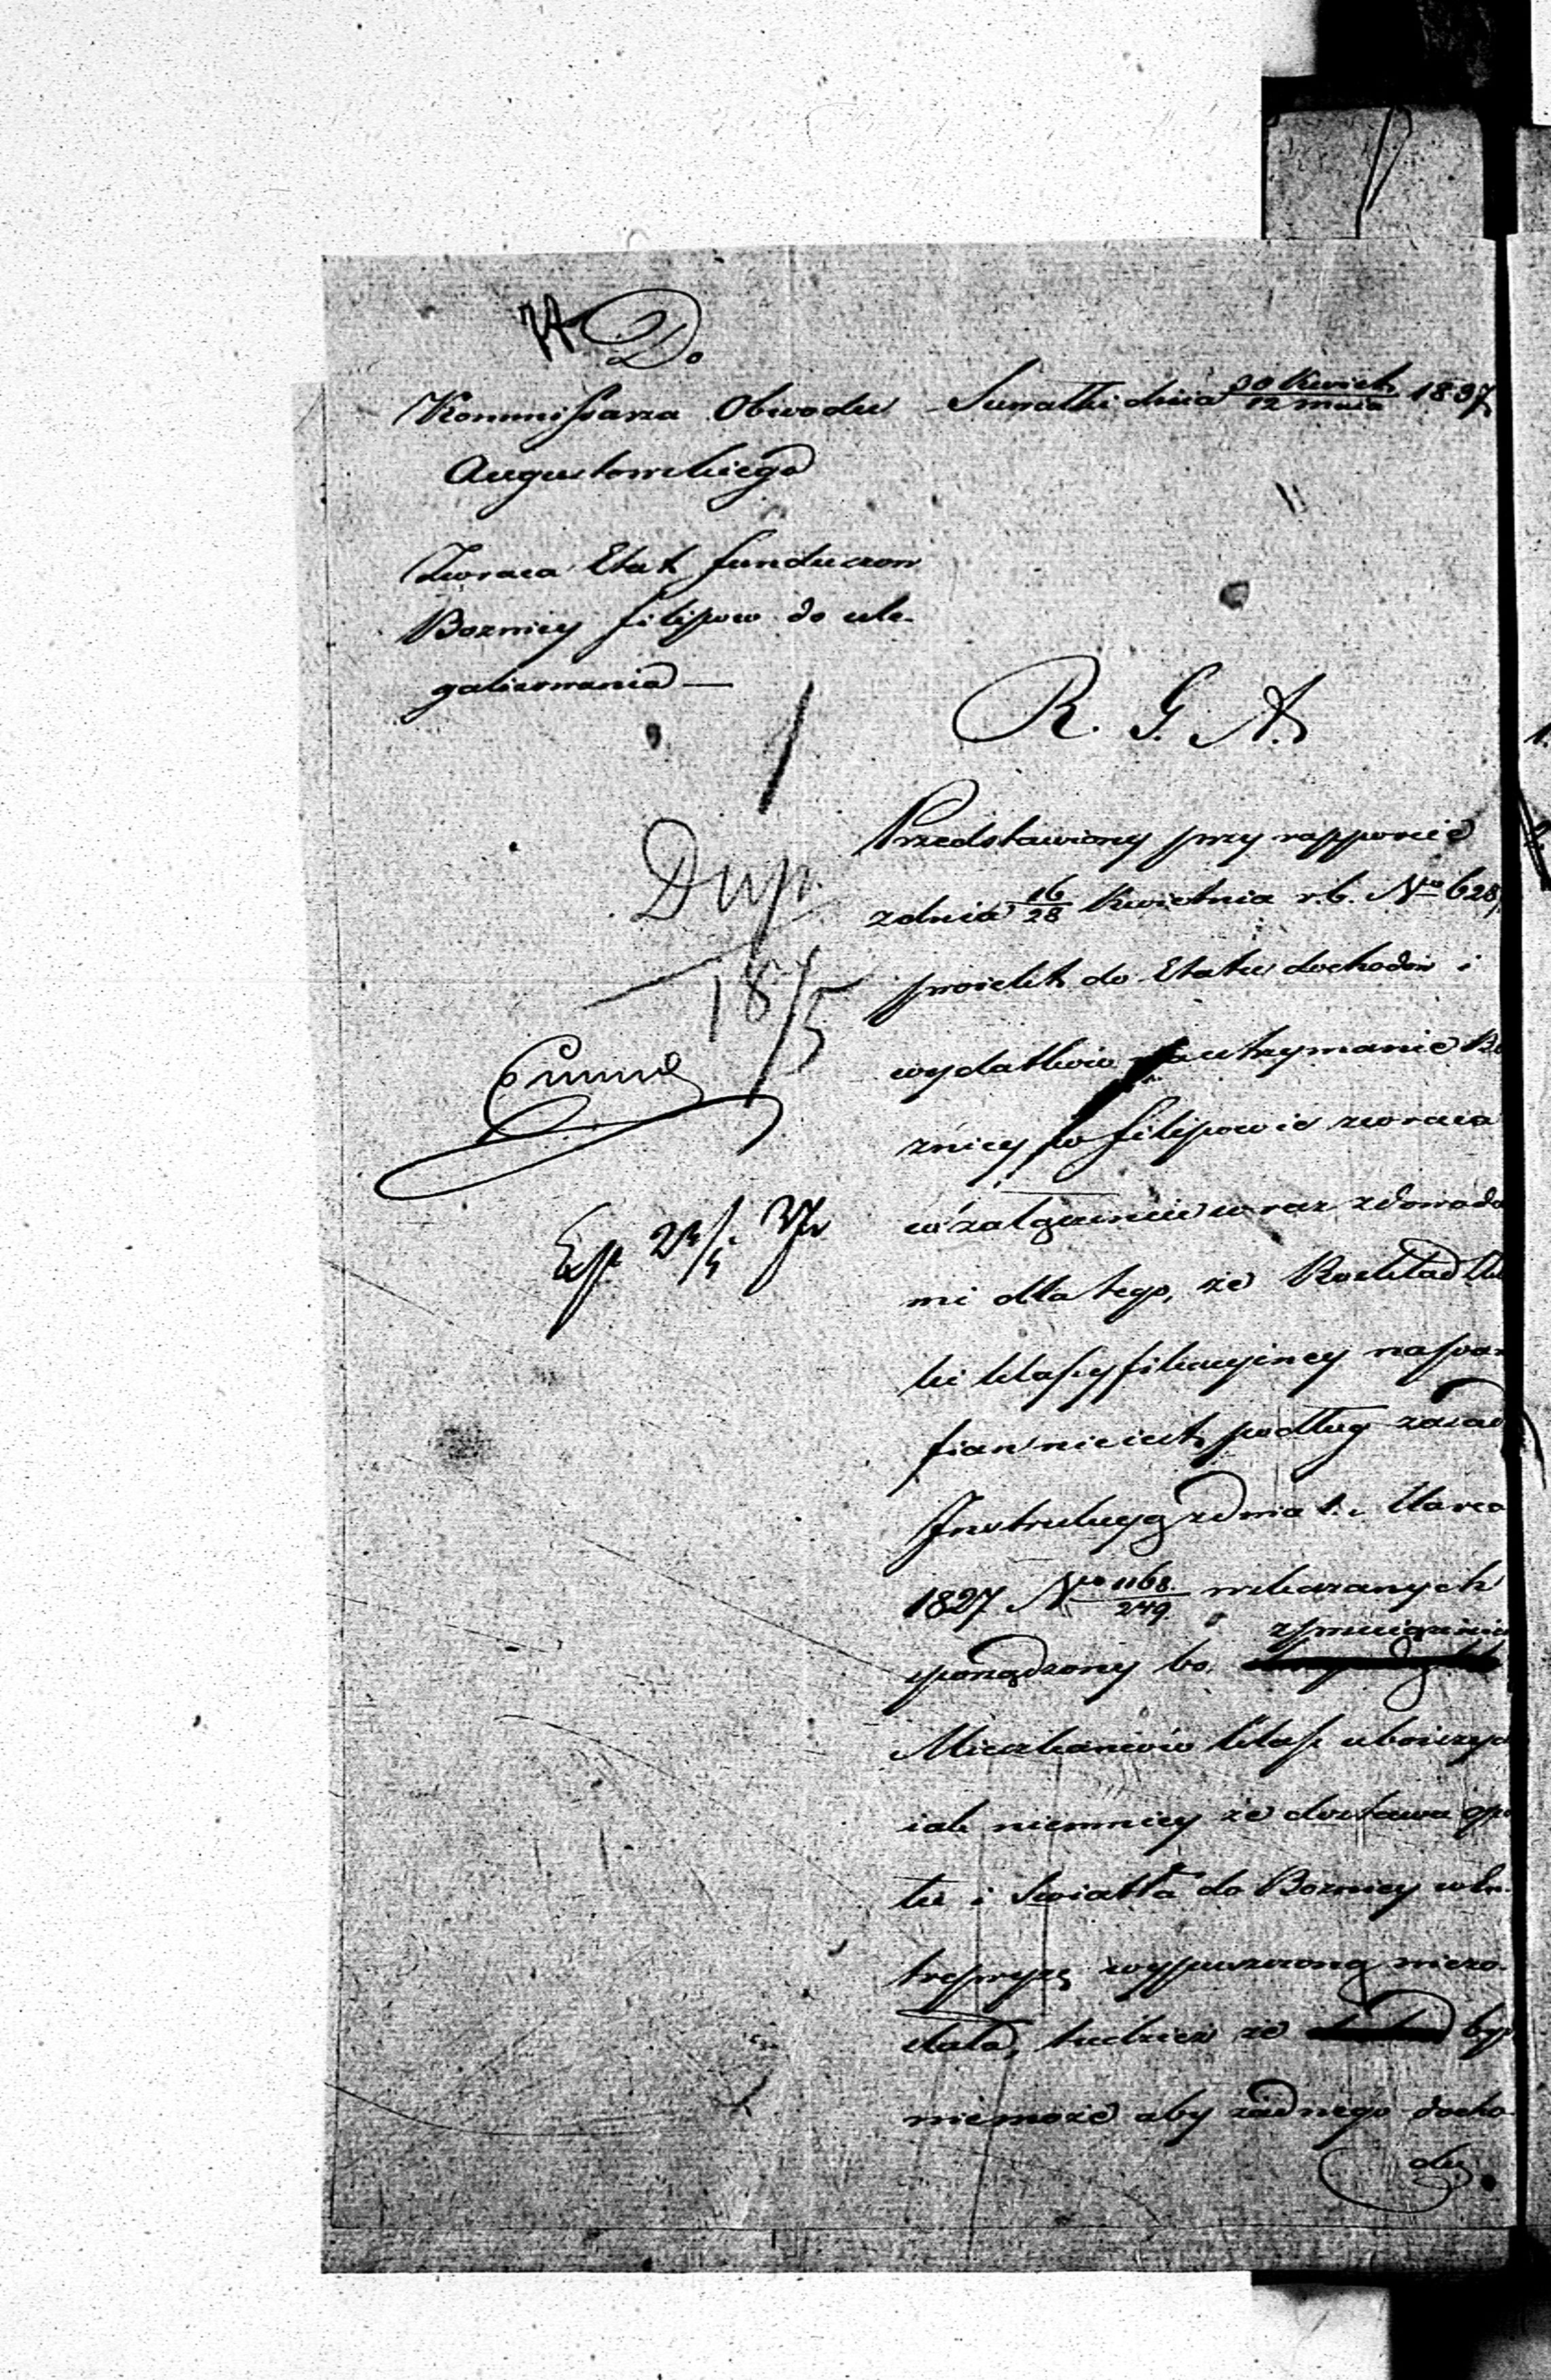 Do
Kommissarza Obwodu
Augustowskiego
Suwałki dnia 30 Kwiet. / 12 Maia 1837
Zwraca Etat funduszow
Boznicy Filipow do ule-
galizowania —
R. G. A.
Dup.
18/5
Exp 23/5 37
Przedstawiony przy rapporcie
z dnia 16/28 Kwietnia r. b. Nro 628,
proiekt do Etatu dochodow i
wydatkow na utrzymanie Bo
znicy w Filipowie zwraca
w załączeniu wraz z dowoda
mi dla tego, że Rozkład
ki klassyfikacyiney na para
fian nie iest podług zasad
Instrukcyą z dnia Marca
1827 Nro 1168/249 wskazanych
sporządzony bo
Mieszkancow klass uboższych
iak niemniey że dostawa opa
łu i Swiatła do Boznicy w En-
trepryzę wypuszczoną niezo-
stała, tudzież że być
niemoże aby żadnego docho-
du